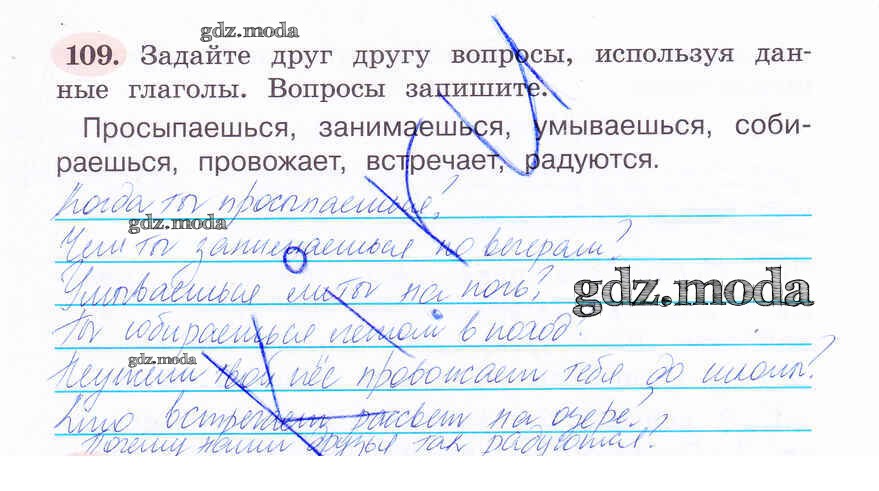 gdz.moda
109. Задайте друг другу вопросы, используя дан-
ные глаголы. Вопросы запишите.
Просыпаешься, занимаешься, умываешься, соби-
раешься, провожает, встречает, радуются.
Когда ты просыпаешься?
gdz.moda
Чем ты занимаешься по вечерам?
Умываешься ли ты на ночь?
gdz.moda
Ты собираешься летом в поход?
gdz.moda
Неужели твой пёс провожает тебя до школы?
Кто встречает рассвет на озере?
Почему наши друзья так радуются?